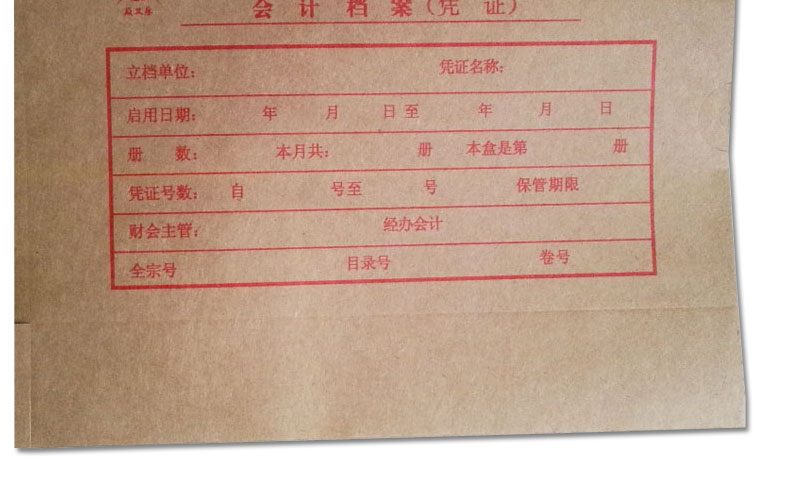 会 计 档 案（凭 证）
立档单位： 凭证名称：
启用日期： 年 月 日 至 年 月 日
册 数： 本月共： 册 本盒是第 册
凭证号数： 自 号至 号 保管期限
财会主管： 经办会计
全宗号 目录号 卷号